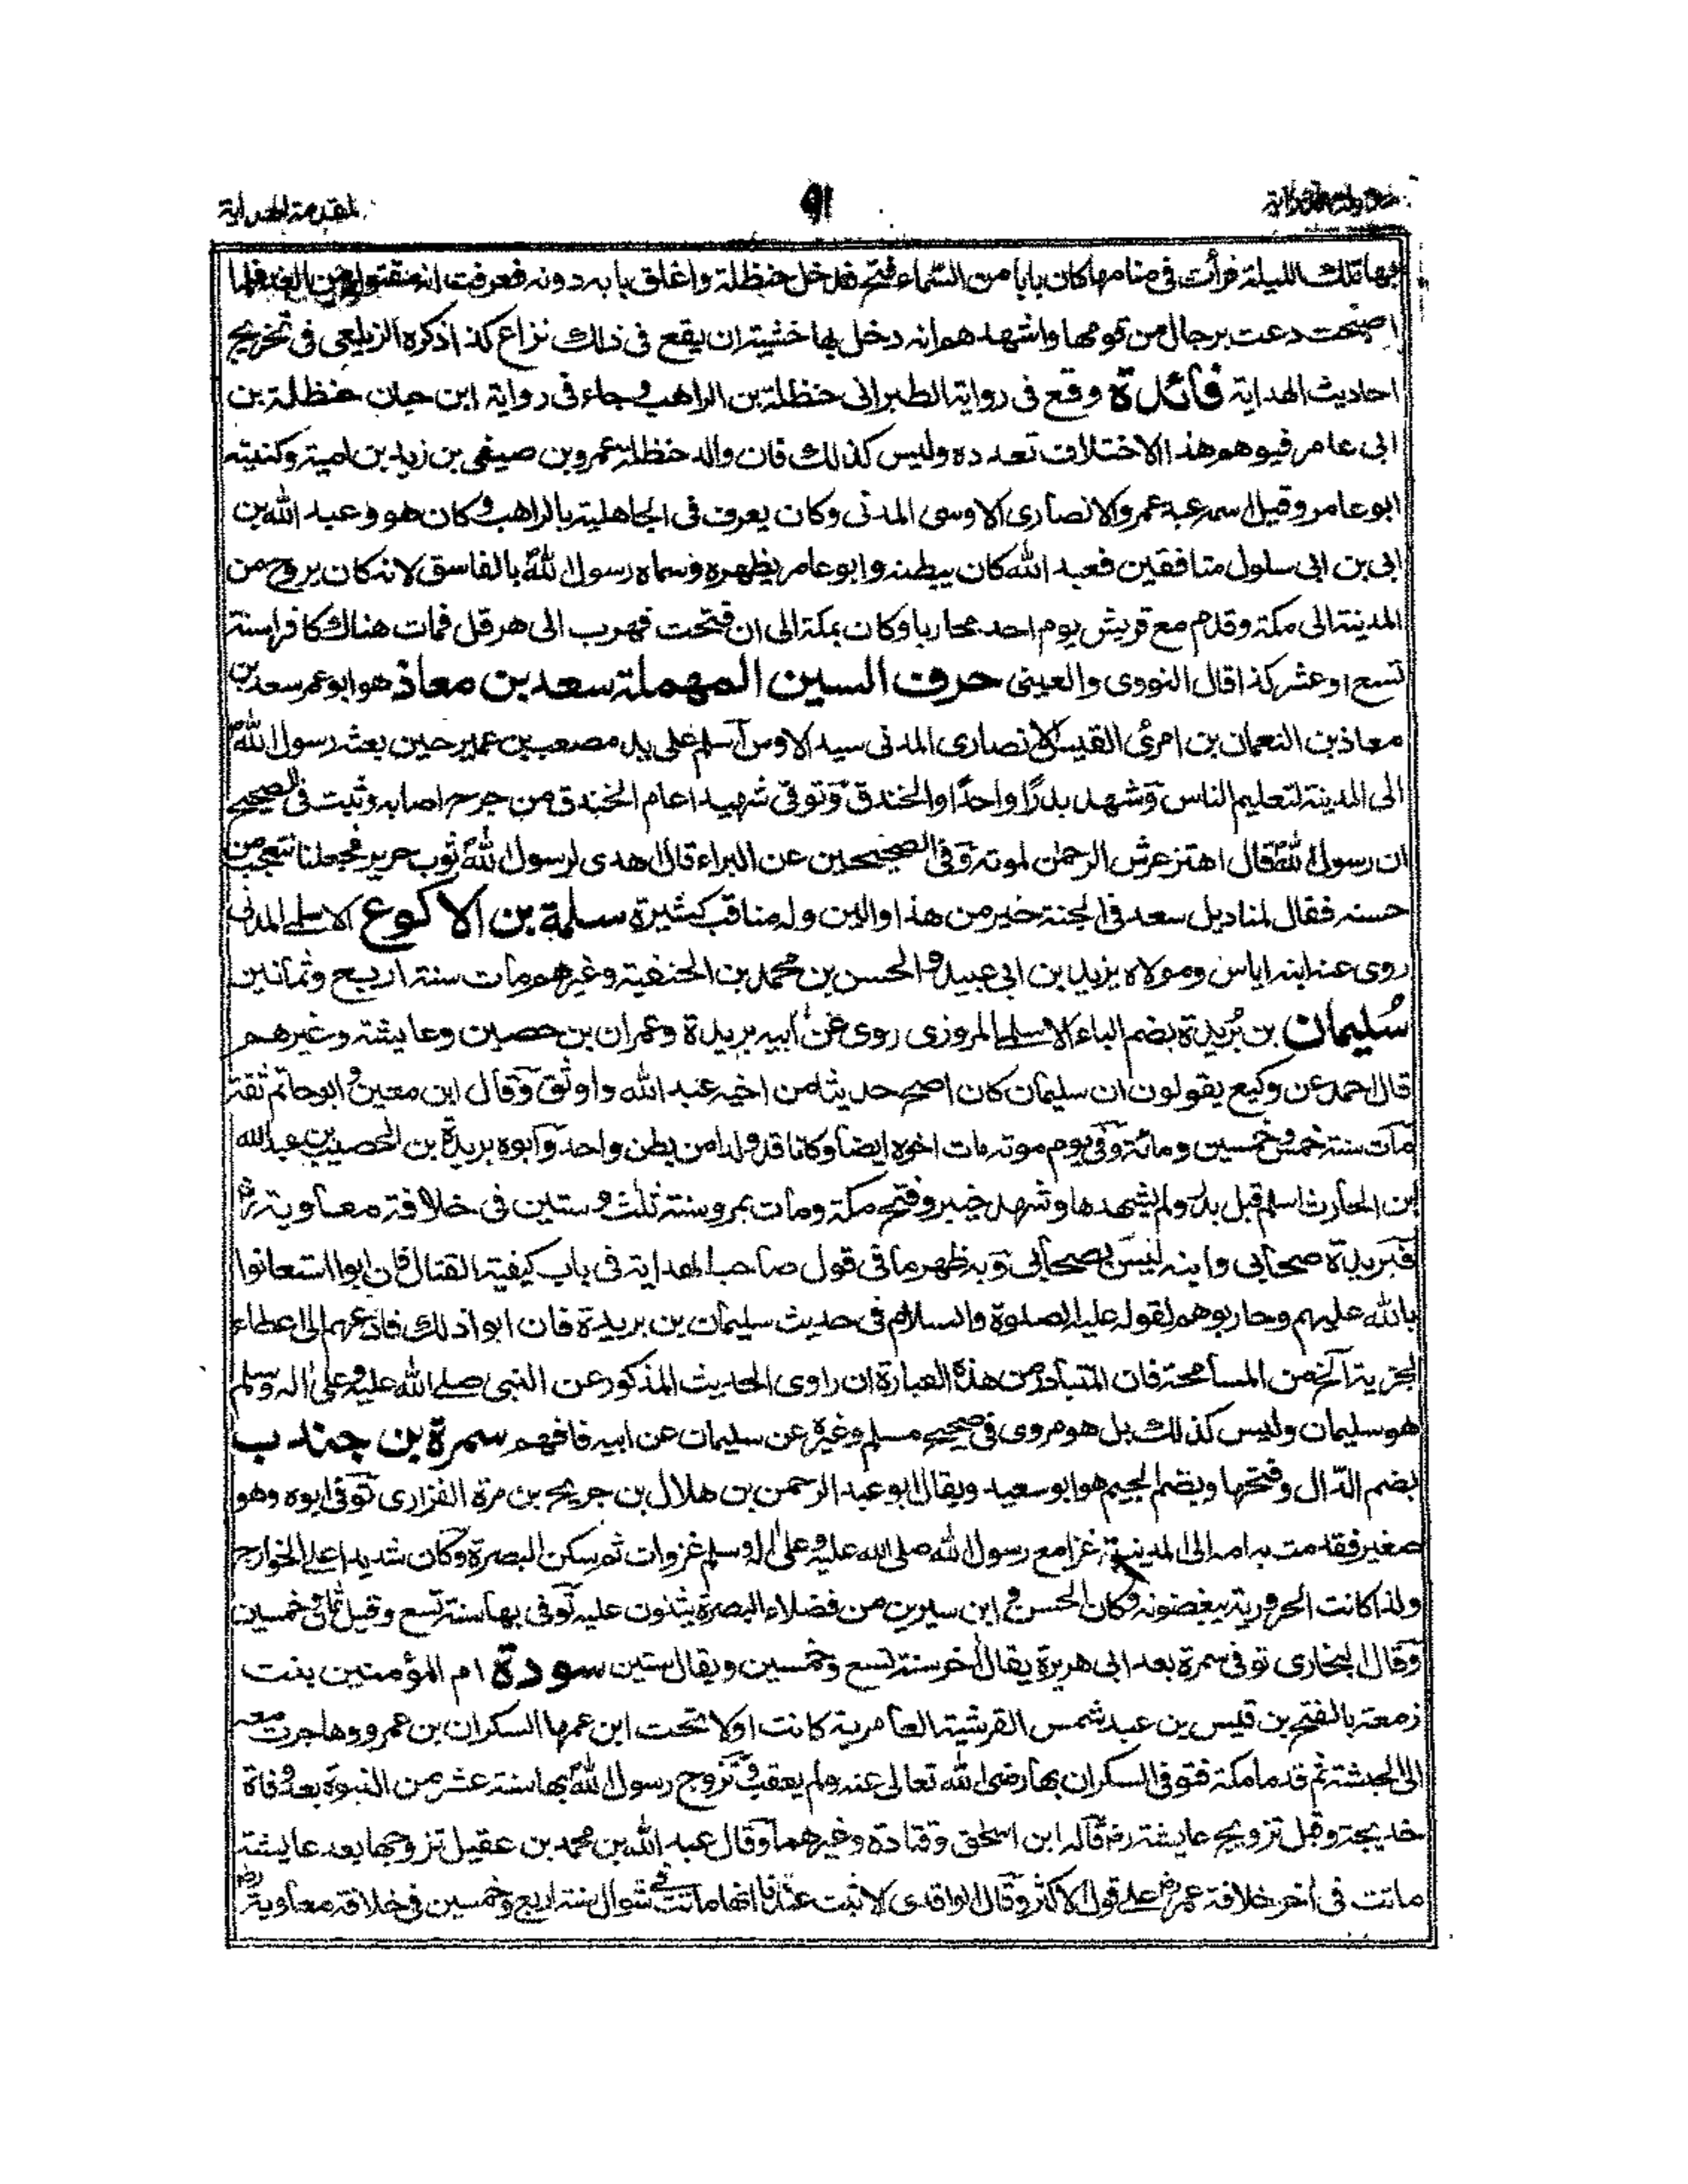 مقدمة الهداية
٩١
بها تلك الليلة فرأت فى منامها كان بابا من السماء فتح فدخل حنظلة واغلق بابه دونه فعرفت انه مقتول من الغد فلما
اصبحت دعت برجال من قومها واشهدهم انه دخل بها خشية ان يقع فى ذلك نزاع كذا ذكره الزيلعى فى تخريج
احاديث الهداية فائدة وقع فى رواية الطبرانى حنظلة بن الراهب وجاء فى رواية ابن حبان حنظلة بن
ابى عامر فيوهم هذا الاختلاف تعدده وليس كذلك فان والد حنظلة عمرو بن صيفى بن زيد بن امية وكنيته
ابو عامر وقيل اسمه عبد عمرو الانصارى الاوسى المدنى وكان يعرف فى الجاهلية بالراهب وكان هو وعبد الله بن
ابى بن ابى سلول منافقين فعبد الله كان يبطنه وابو عامر يظهره وسماه رسول الله بالفاسق لانه كان يروح من
المدينة الى مكة وقدم مع قريش يوم احد محاربا وكان بمكة الى ان فتحت فهرب الى هرقل فمات هناك كافرا سنة
تسع او عشر كذا قال النووى والعينى حرف السين المهملة سعد بن معاذ هو ابو عمر سعد بن
معاذ بن النعمان بن امرئ القيس الانصارى المدنى سيد الاوس اسلم على يد مصعب بن عمير حين بعثه رسول الله
الى المدينة لتعليم الناس وشهد بدرًا واحدًا والخندق وتوفى شهيدا عام الخندق من جرح اصابه وثبت فى الصحيح
ان رسول الله قال اهتز عرش الرحمن لموته وفى الصحيحين عن البراء قال اهدى لرسول الله ثوب حرير فجعلنا نتعجب من
حسنه فقال لمناديل سعد فى الجنة خير من هذا والين وله مناقب كثيرة سلمة بن الاكوع الاسلمى المدنى
روى عنه ابنه اياس ومولاه يزيد بن ابى عبيد والحسن بن محمد بن الحنفية وغيرهم ومات سنة اربع وثمانين
سُليمان بن بُريدة بضم الباء الاسلمى المروزى روى عن ابيه بريدة وعمران بن حصين وعايشة وغيرهم
قال احمد عن وكيع يقولون ان سليمان كان اصح حديثا من اخيه عبد الله واوثق وقال ابن معين وابو حاتم ثقة
مات سنة خمس وخمسين ومائة وفى يوم موته مات اخوه ايضا وكانا قد ولدا من بطن واحد وابوه بريدة بن الحصيب بن عبد الله
ابن الحارث اسلم قبل بدر ولم يشهدها وشهد خيبر وفتح مكة ومات بمرو سنة ثلث وستين فى خلافة معاوية رض
فبريدة صحابى وابنه ليس بصحابى وبه ظهر ما فى قول صاحب الهداية فى باب كيفية القتال فان ابوا استعانوا
بالله عليهم وحاربوهم لقوله عليه الصلوة والسلام فى حديث سليمان بن بريدة فان ابوا ذلك فادعهم الى اعطاء
الجزية الخ من المسامحة فان المتبادر من هذه العبارة ان راوى الحديث المذكور عن النبى صلى الله عليه وعلى اله وسلم
هو سليمان وليس كذلك بل هو مروى فى صحيح مسلم وغيره عن سليمان عن ابيه فافهم سمرة بن جندب
بضم الدّال وفتحها وبضم الجيم هو ابو سعيد ويقال ابو عبد الرحمن بن هلال بن جريج بن مرة الفزارى توفى ابوه وهو
صغير فقدمت به امه الى المدينة غزا مع رسول الله صلى الله عليه وعلى اله وسلم غزوات ثم سكن البصرة وكان شديدا على الخوارج
ولذا كانت الحرورية يبغضونه وكان الحسن وابن سيرين من فضلاء البصرة يثنون عليه توفى بها سنة تسع وقيل ثمان وخمسين
وقال البخارى توفى سمرة بعد ابى هريرة يقال اخر سنة تسع وخمسين ويقال ستين سودة ام المؤمنين بنت
زمعة بالفتح بن قيس بن عبد شمس القرشية العامرية كانت اولا تحت ابن عمها السكران بن عمرو وهاجرت معه
الى الحبشة ثم قدما مكة فتوفى السكران بها رضى الله تعالى عنه ولم يعقب وتزوج رسول الله بها سنة عشر من النبوة بعد وفاة
خديجة وقبل تزويج عايشة رض قاله ابن اسحق وقتادة وغيرهما وقال عبد الله بن محمد بن عقيل تزوجها بعد عايشة
ماتت فى اخر خلافة عمر رض على قول الاكثر وقال الواقدى الاثبت عندنا انها ماتت فى شوال سنة اربع وخمسين فى خلافة معاوية رض